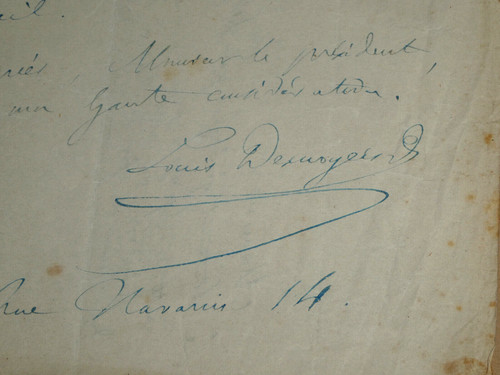 il.
riés, Monsieur le président,
ma haute considération.
Louis Desnoyers
Rue Navarin 14.